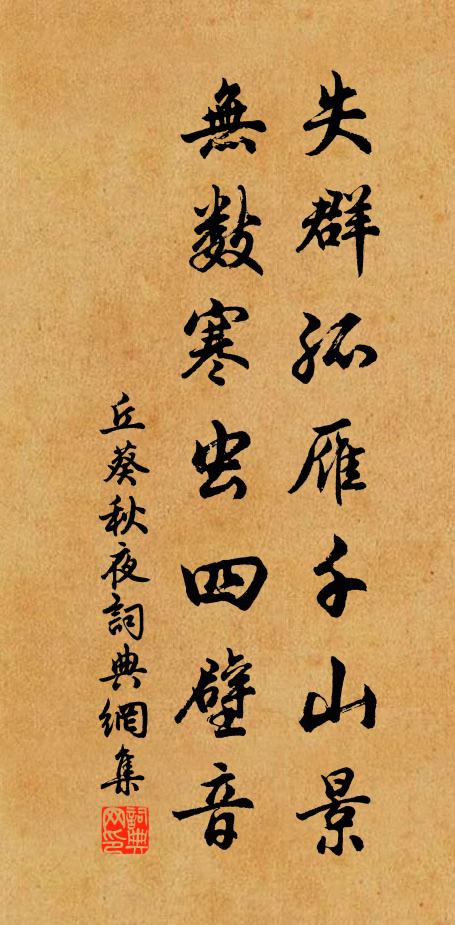 失群孤雁千山景
無數寒虫四壁音
丘葵秋夜詞典網集
詞典
网印